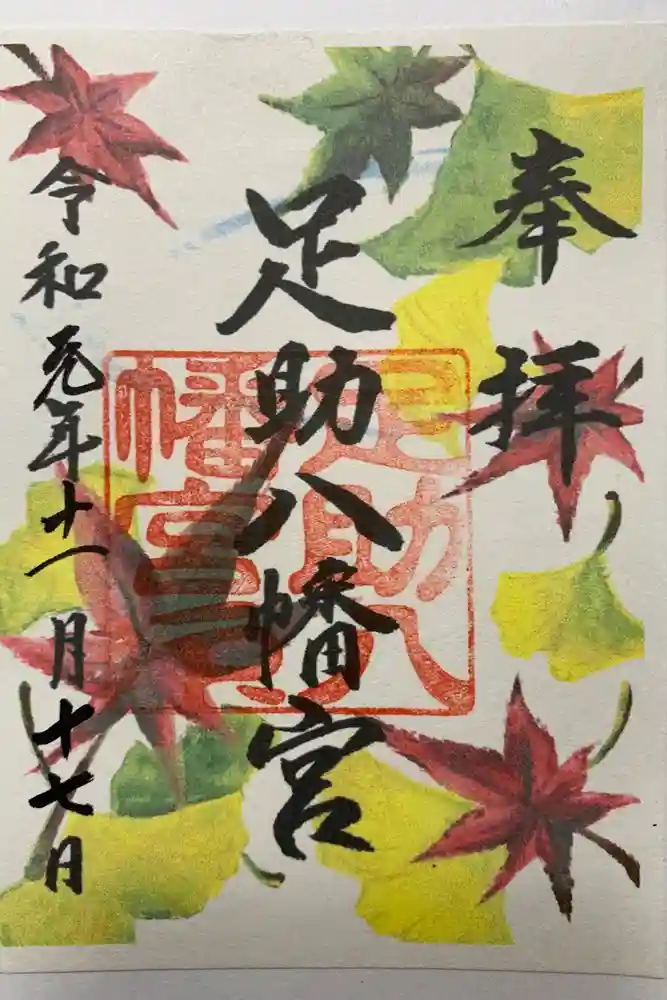 奉拝
足助八幡宮
令和元年十一月十七日
足助八
幡宮